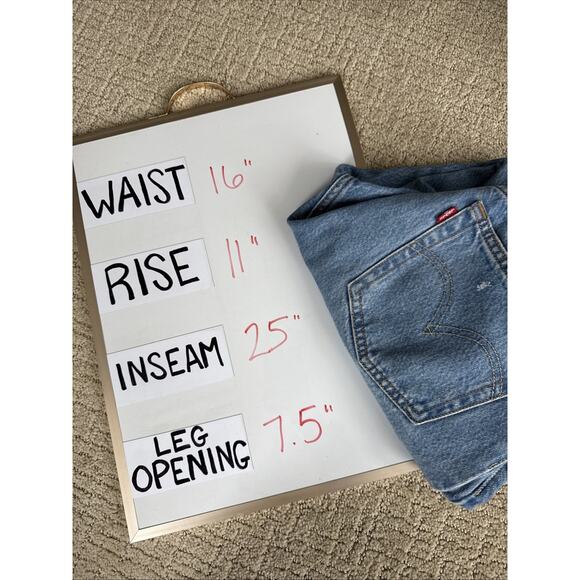 WAIST 16"
RISE 11"
INSEAM 25"
LEG
OPENING 7.5"